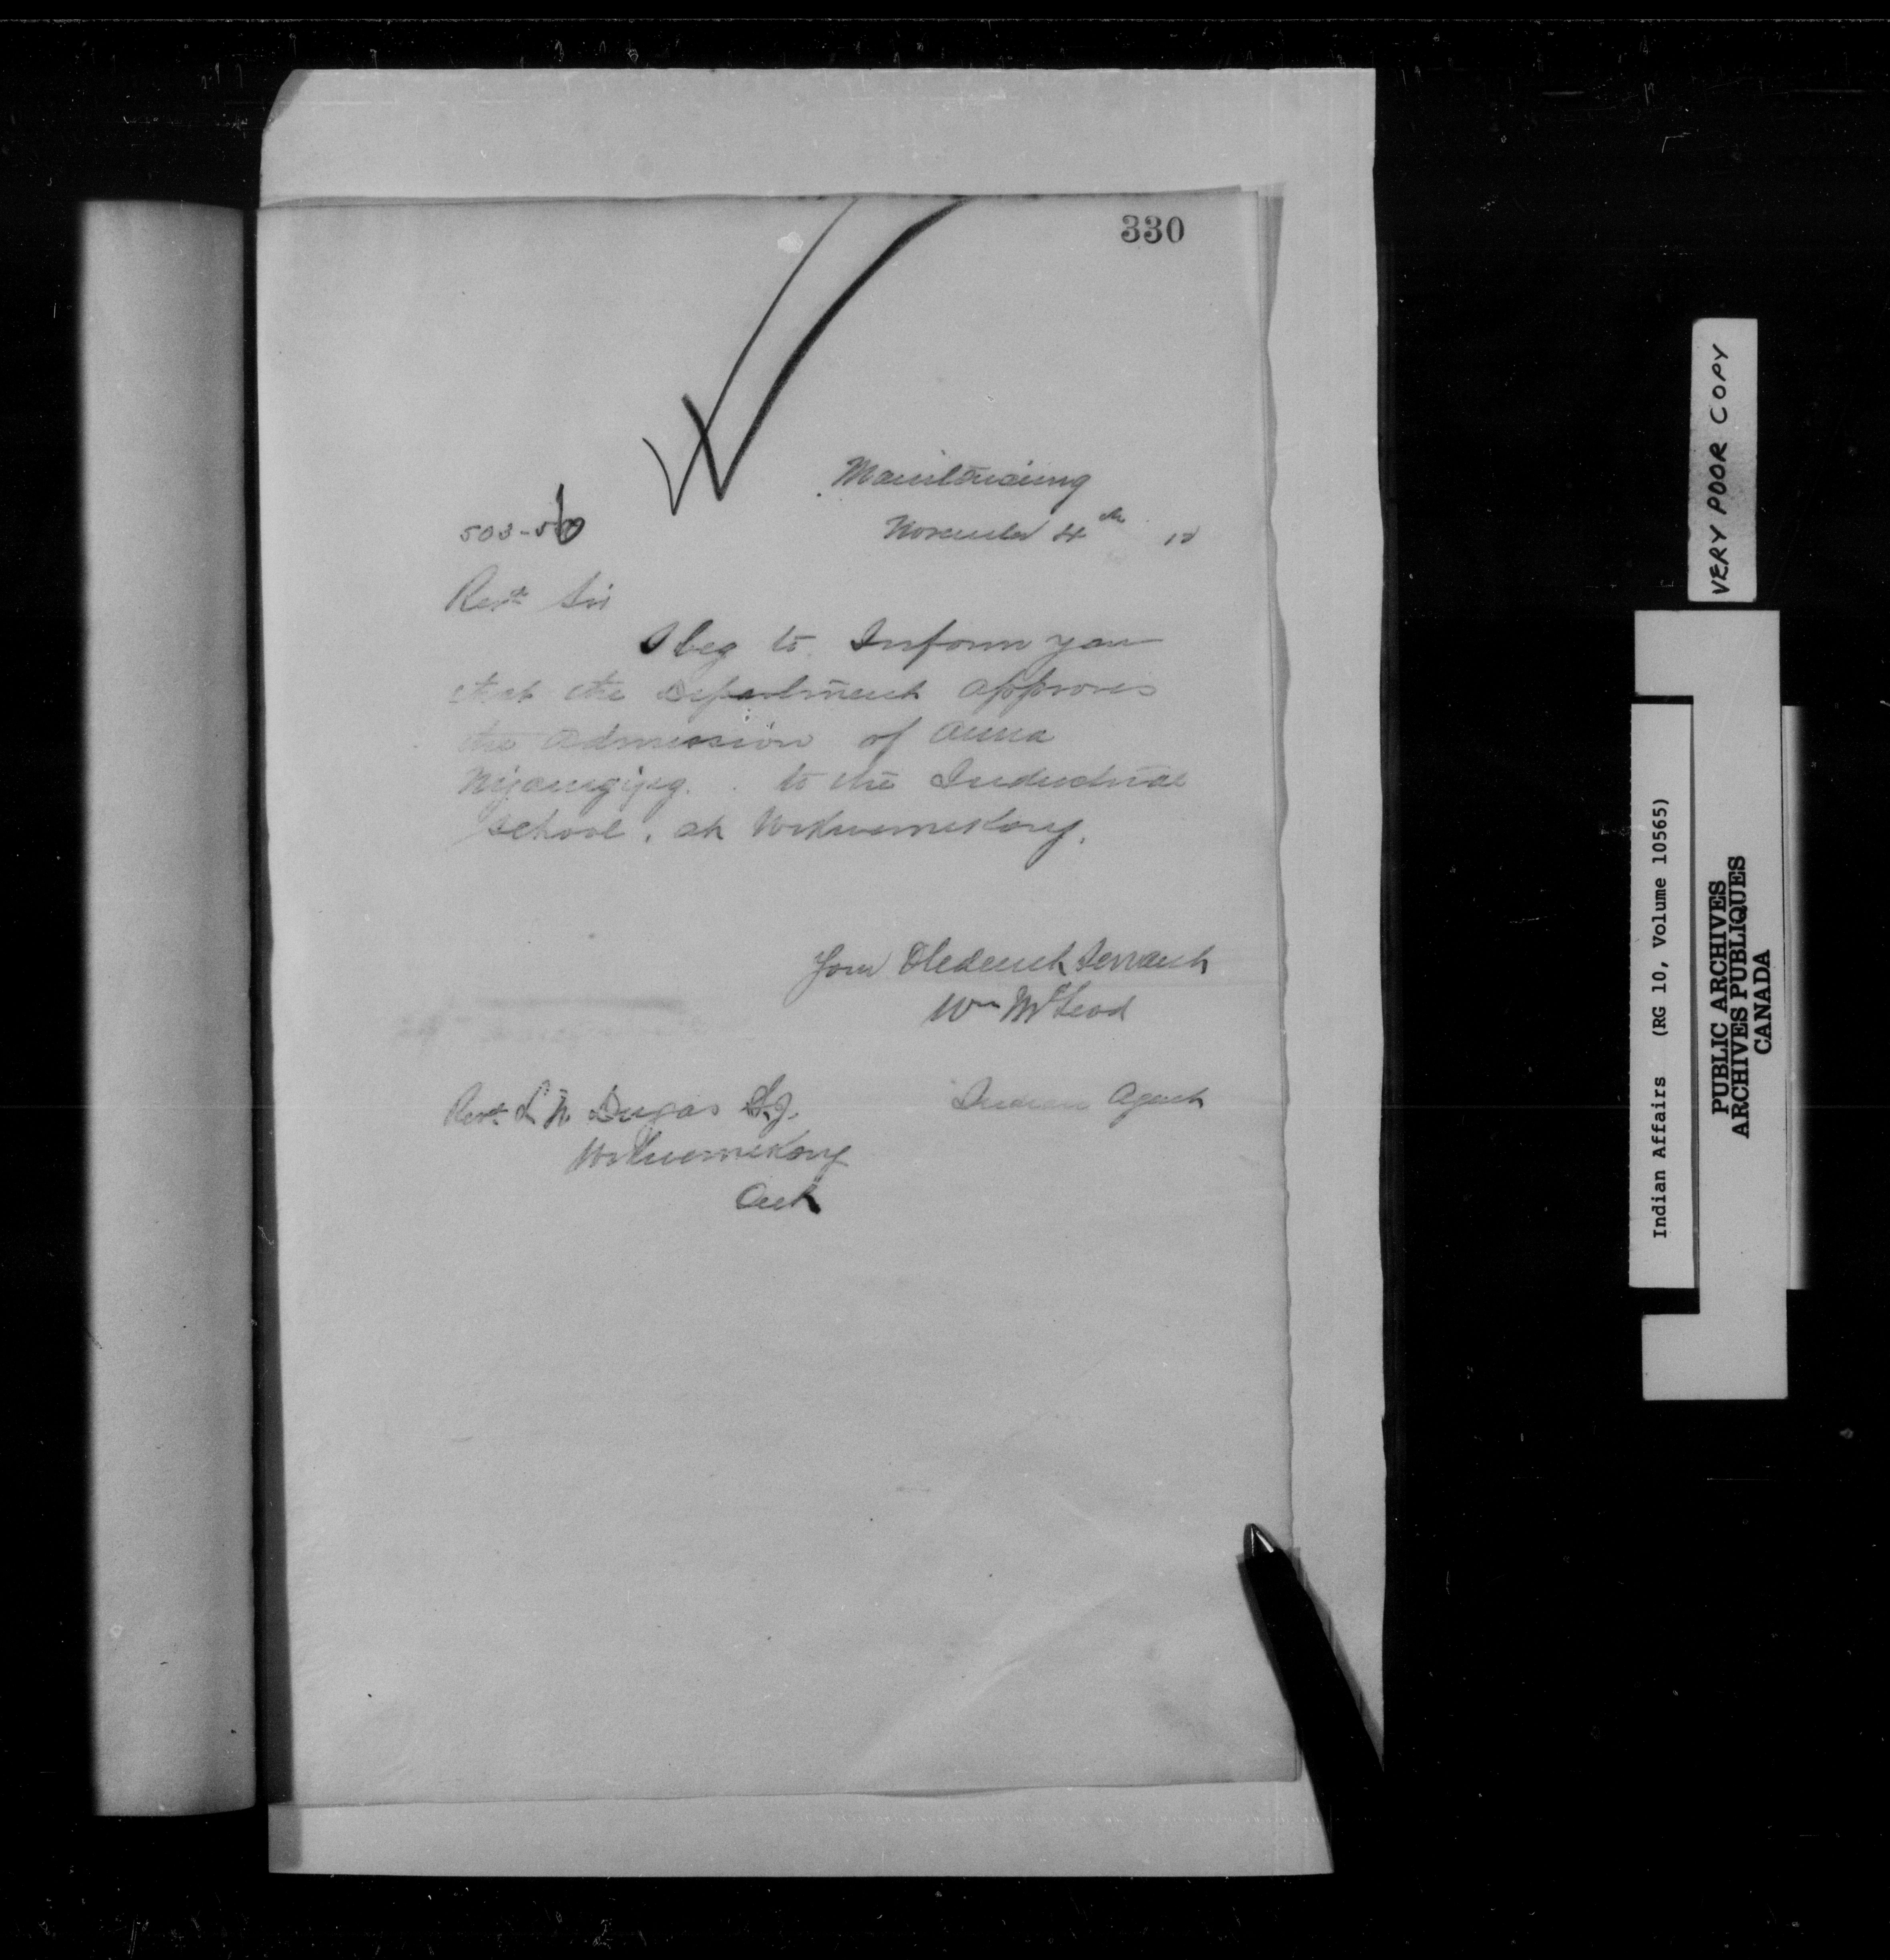 330
Manitowaning
503-5
November 4th 10
Revd Sir
I beg to Inform you
that the Department approves
the admission of Anna
to the Industrial
School, at Wikwemikong.
Your Obedient Servant
Wm McLeod
Indian Agent
Revd L N Dugas S.J.
Wikwemikong
Ont
VERY POOR COPY
Indian Affairs (RG 10, Volume 10565)
PUBLIC ARCHIVES
ARCHIVES PUBLIQUES
CANADA